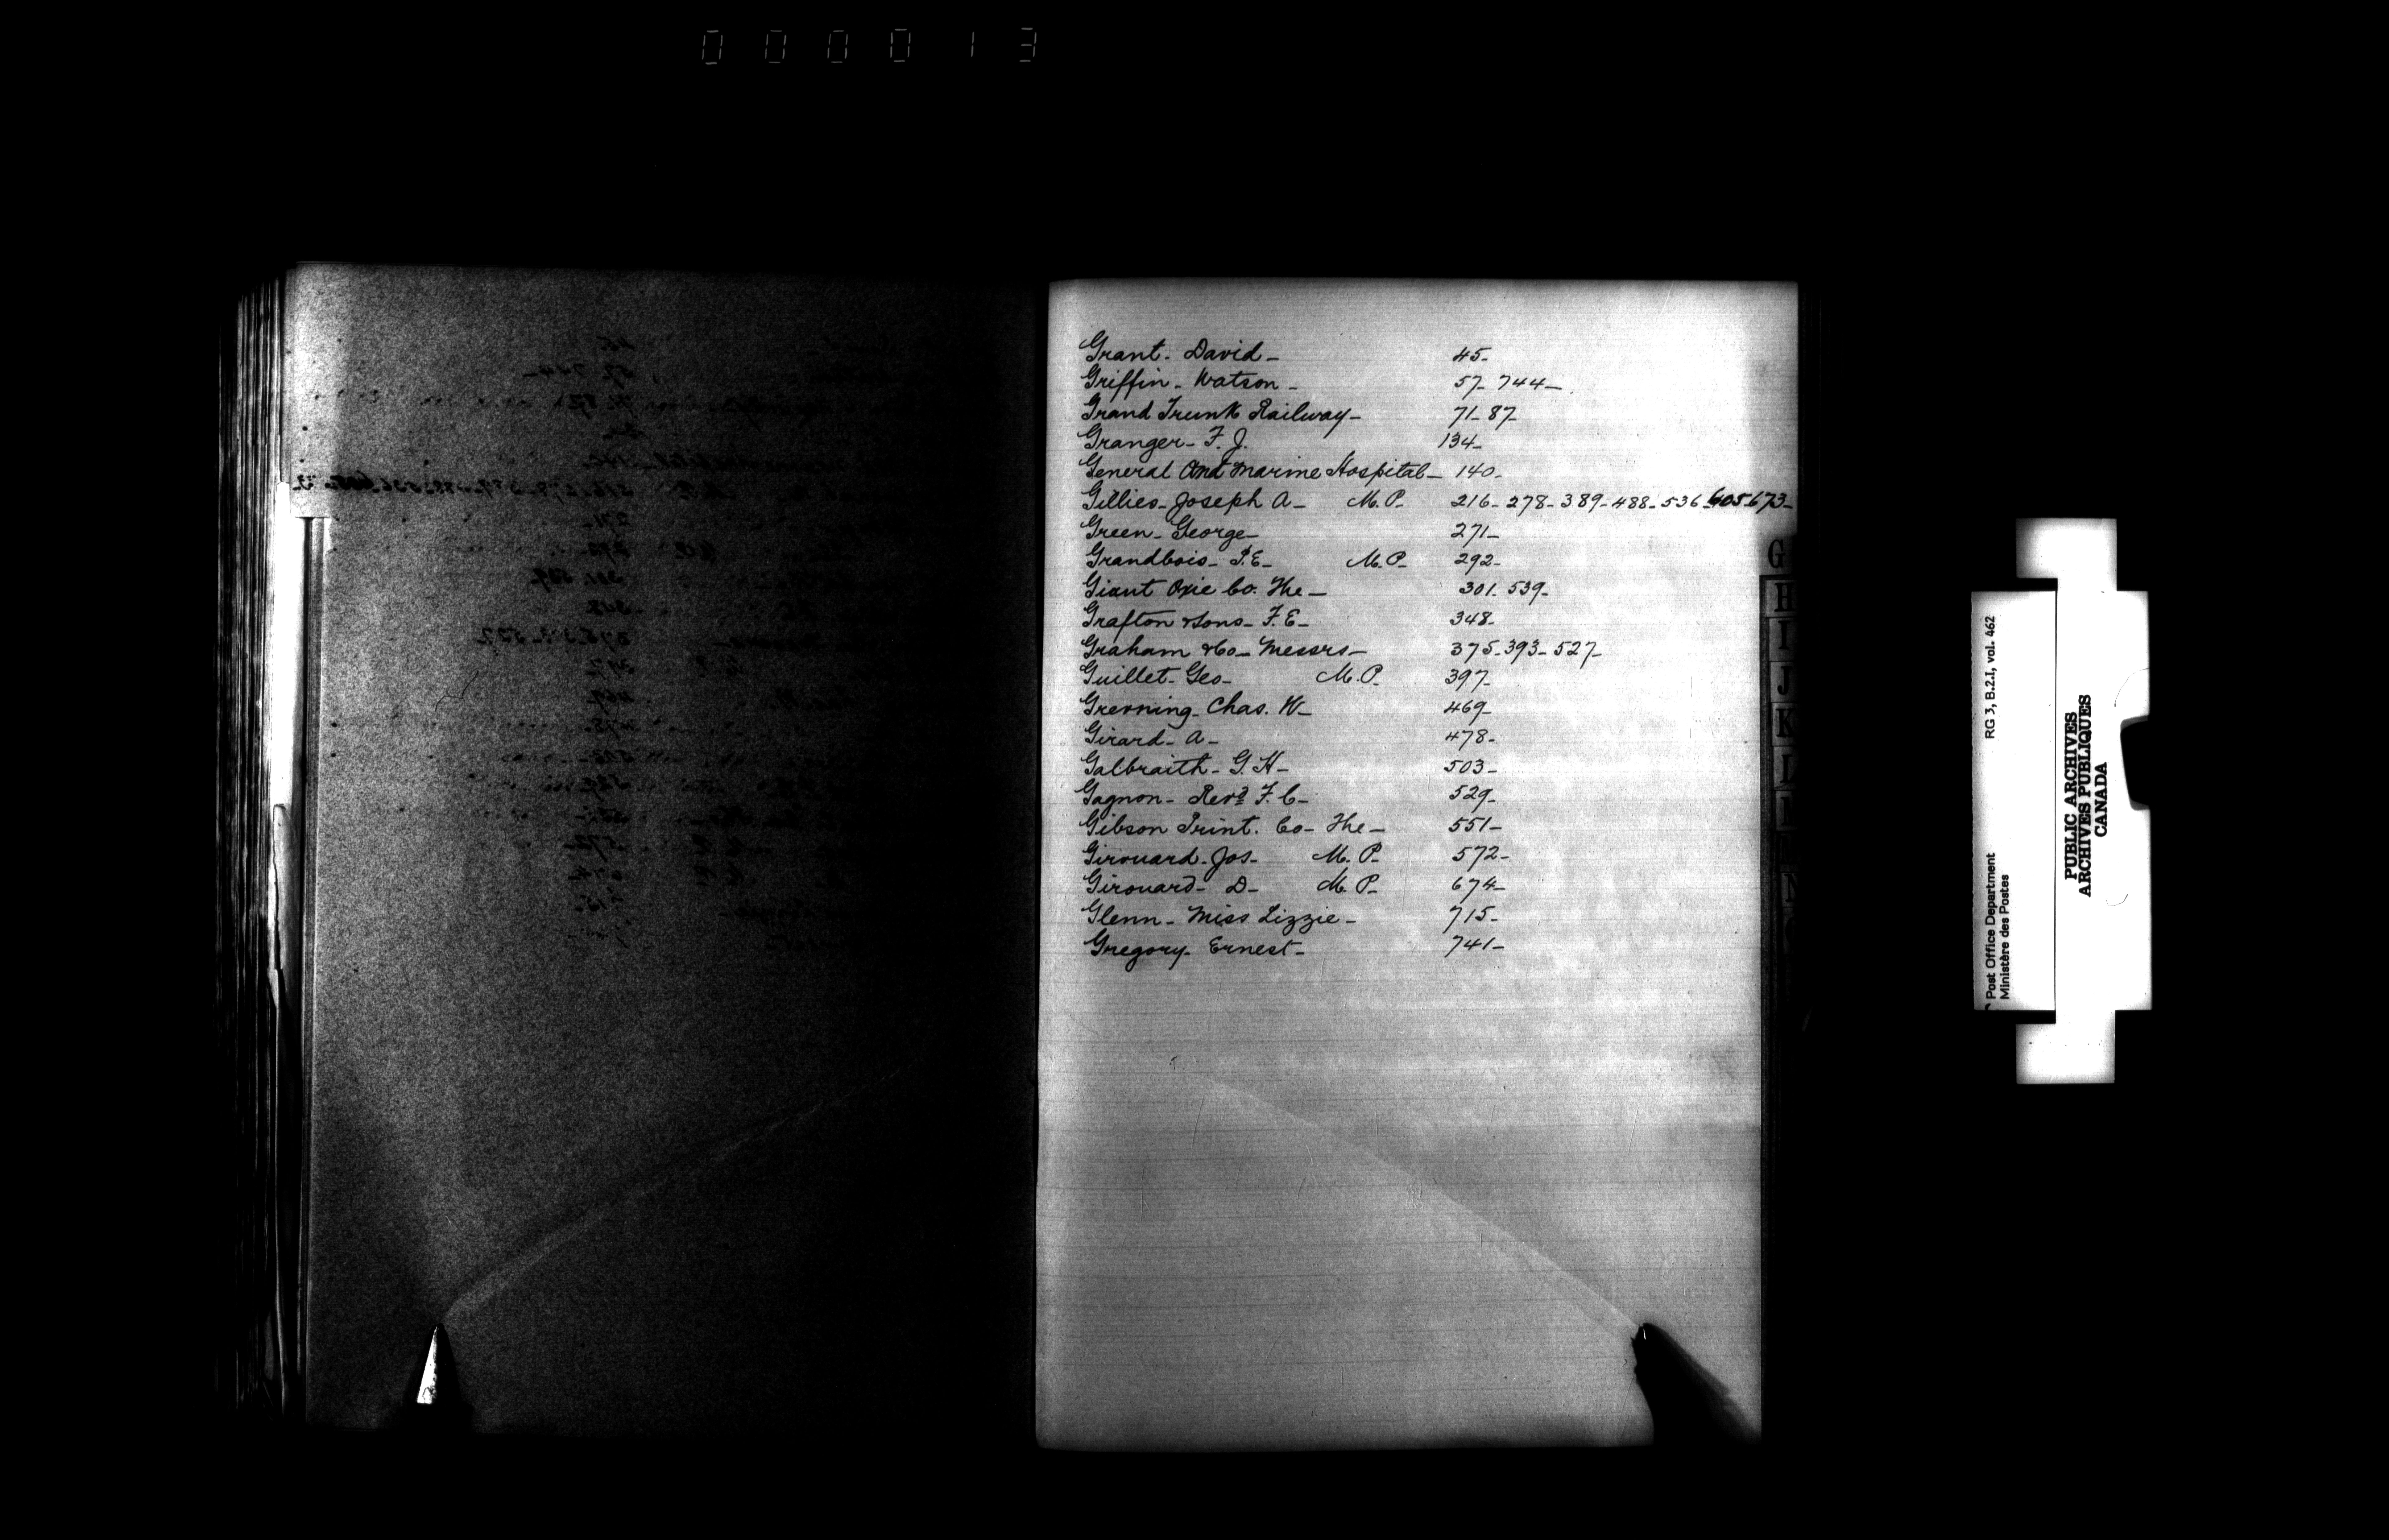 000013
Grant - David - 45 -
Griffin - Watson - 57 - 744 -
Grand Trunk Railway - 71 - 87 -
Granger - F. J. 134 -
General And Marine Hospital - 140 -
Gillies - Joseph A - M. P. 216 - 278 - 389 - 488 - 536 - 605 - 673 -
Green - George - 271 -
Grandbois - P. E - M. P. 292 -
Giant Oxie Co. The - 301 - 539 -
Grafton & Sons - F. E - 348 -
Graham & Co - Messrs - 375 - 393 - 527 -
Guillet - Geo - M. P. 397 -
Grevning - Chas. W - 469 -
Girard - A - 478 -
Galbraith - G. H - 503 -
Gagnon - Revd F. C - 529 -
Gibson Print. Co - The - 551 -
Girouard - Jos - M. P. 572 -
Girouard - D - M. P. 674 -
Glenn - Miss Lizzie - 715 -
Gregory - Ernest - 741 -
G
H
I
J
K
L
N
Post Office Department RG 3, B.2.I, vol. 462
Ministère des Postes
PUBLIC ARCHIVES
ARCHIVES PUBLIQUES
CANADA